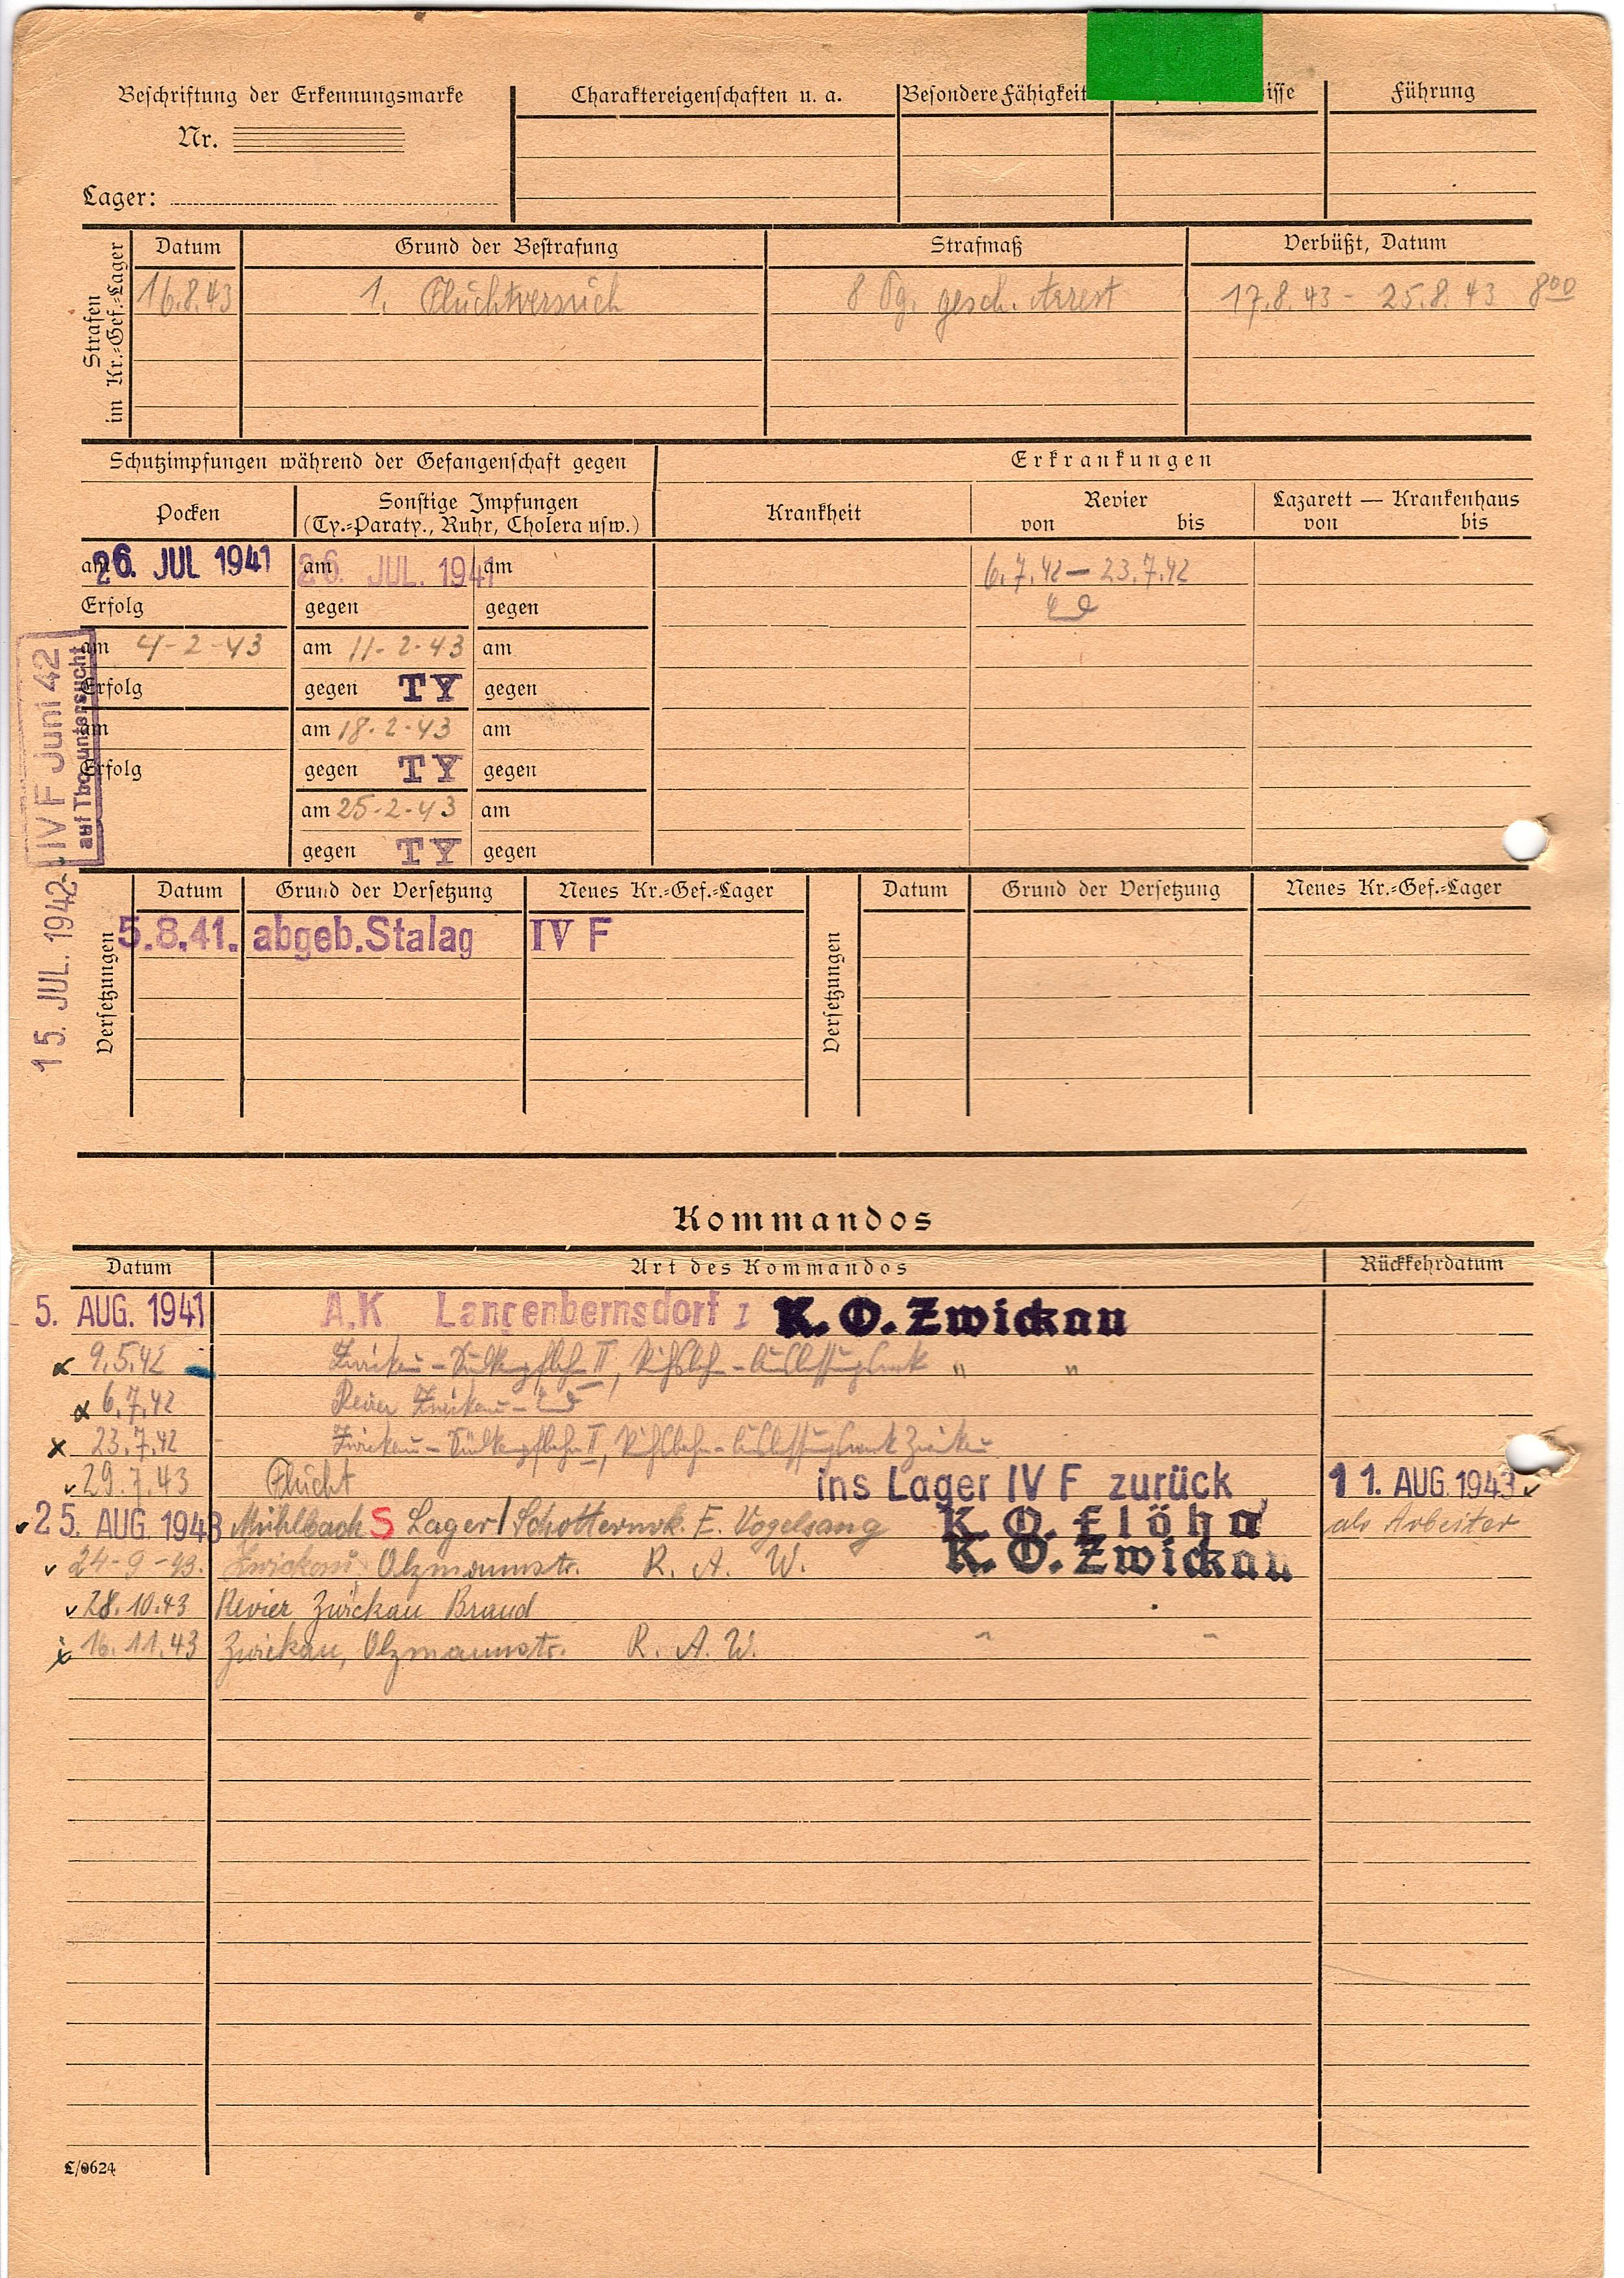 Beschriftung der Erkennungsmarke
Nr.
Lager:
Charaktereigenschaften u. a.
Besondere Fähigkeit
isse
Führung
Strafen
im Kr.=Gef.=Lager
Datum Grund der Bestrafung Strafmaß Verbüßt, Datum
16.8.43 1. Fluchtversuch 8 Tg. gesch. Arrest 17.8.43 - 25.8.43 8⁰⁰
Schutzimpfungen während der Gefangenschaft gegen
Erkrankungen
Pocken
Sonstige Impfungen
(Ty.=Paraty., Ruhr, Cholera usw.)
Krankheit
Revier
von bis
Lazarett — Krankenhaus
von bis
am 26. JUL 1941 am 26. JUL. 1941 am 6.7.42 — 23.7.42
Erfolg gegen gegen
am 4-2-43 am 11-2-43 am
Erfolg gegen TY gegen
am am 18-2-43 am
Erfolg gegen TY gegen
am 25-2-43 am
gegen TY gegen
IV F Juni 42
auf Tbc untersucht
15. JUL. 1942
Versetzungen
Datum Grund der Versetzung Neues Kr.=Gef.=Lager
5.8.41. abgeb. Stalag IV F
Versetzungen
Datum Grund der Versetzung Neues Kr.=Gef.=Lager
Kommandos
Datum Art des Kommandos Rückkehrdatum
5. AUG. 1941 A.K Langenbernsdorf I K. O. Zwickau
9.5.42 Zwickau - II, " "
6.7.42 Revier Zwickau -
23.7.42 Zwickau - II, Zwickau
29.7.43 Flucht ins Lager IV F zurück 11. AUG. 1943
25. AUG. 1943 Mühlbach S Lager / Schotterwrk. E. Vogelsang K. O. Flöha als Arbeiter
24-9-43. Zwickau, Olzmannstr. R. A. W. K. O. Zwickau
28.10.43 Revier Zwickau Brand
16.11.43 Zwickau, Olzmannstr. R. A. W. " "
L/0624